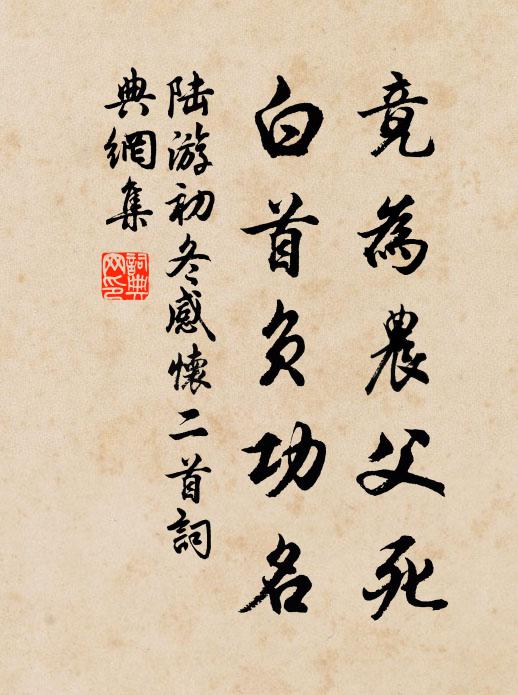 竟為農父死
白首負功名
陸游初冬感懷二首詞
典網集
詞典
网印